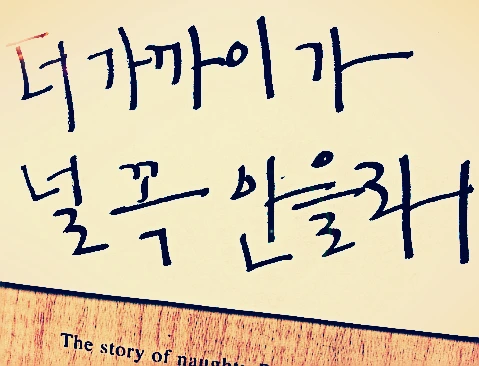 더 가까이 가
널 꼭 안을래
The story of naughty